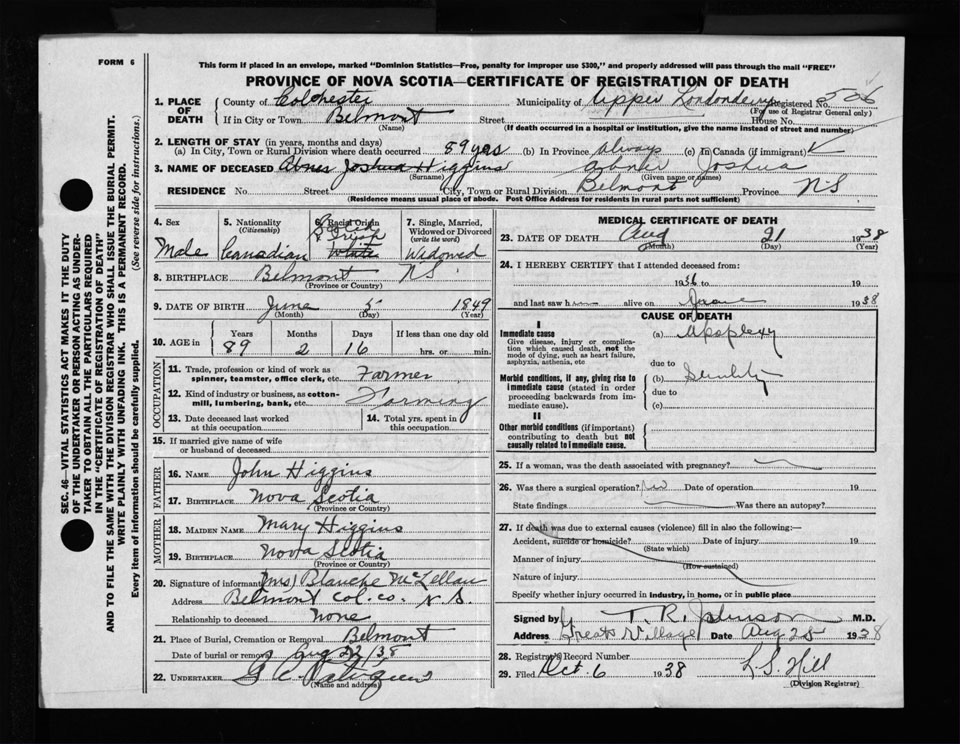 FORM 6
This form if placed in an envelope, marked "Dominion Statistics—Free, penalty for improper use $300," and properly addressed will pass through the mail "FREE"
PROVINCE OF NOVA SCOTIA—CERTIFICATE OF REGISTRATION OF DEATH
SEC. 46—VITAL STATISTICS ACT MAKES IT THE DUTY
OF THE UNDERTAKER OR PERSON ACTING AS UNDER-
TAKER TO OBTAIN ALL THE PARTICULARS REQUIRED
IN THE "CERTIFICATE OF REGISTRATION OF DEATH"
AND TO FILE THE SAME WITH THE DIVISION REGISTRAR WHO SHALL ISSUE THE BURIAL PERMIT.
WRITE PLAINLY WITH UNFADING INK. THIS IS A PERMANENT RECORD.
Every item of information should be carefully supplied. (See reverse side for instructions.)
1. PLACE OF DEATH County of Colchester Municipality of Upper Londonderry Registered No. 506
(For use of Registrar General only)
If in City or Town Belmont Street House No.
(Name) (If death occurred in a hospital or institution, give the name instead of street and number)
2. LENGTH OF STAY (in years, months and days)
(a) In City, Town or Rural Division where death occurred 89 yrs (b) In Province always (c) In Canada (if immigrant)
3. NAME OF DECEASED Abner Joshua Higgins Abner Joshua
(Surname) (Given name or names)
RESIDENCE No. Street City, Town or Rural Division Belmont Province N S
(Residence means usual place of abode. Post Office Address for residents in rural parts not sufficient)
4. Sex
Male
5. Nationality
(Citizenship)
Canadian
6. Racial Origin
Scotch
& Irish
White
7. Single, Married,
Widowed or Divorced
(write the word)
Widowed
8. BIRTHPLACE Belmont N S
(Province or Country)
9. DATE OF BIRTH June 5 1849
(Month) (Day) (Year)
10. AGE in Years Months Days If less than one day old
89 2 16 hrs. or min.
OCCUPATION
11. Trade, profession or kind of work as
spinner, teamster, office clerk, etc. Farmer
12. Kind of industry or business, as cotton-
mill, lumbering, bank, etc. Farming
13. Date deceased last worked
at this occupation
14. Total yrs. spent in
this occupation
15. If married give name of wife
or husband of deceased
FATHER
16. NAME John Higgins
17. BIRTHPLACE Nova Scotia
(Province or Country)
MOTHER
18. MAIDEN NAME Mary Higgins
19. BIRTHPLACE Nova Scotia
(Province or Country)
20. Signature of informant (Mrs) Blanche McLellan
Address Belmont Col. Co. N. S.
Relationship to deceased None
21. Place of Burial, Cremation or Removal Belmont
Date of burial or removal Aug 22/38
22. UNDERTAKER
(Name and address)
MEDICAL CERTIFICATE OF DEATH
23. DATE OF DEATH Aug 21 1938
(Month) (Day) (Year)
24. I HEREBY CERTIFY that I attended deceased from:
1936 to 19
and last saw h alive on June 1938
CAUSE OF DEATH
I
Immediate cause (a) Apoplexy
Give disease, injury or complica-
tion which caused death, not the
mode of dying, such as heart failure,
asphyxia, asthenia, etc
due to
Morbid conditions, if any, giving rise to
immediate cause (stated in order
proceeding backwards from im-
mediate cause).
(b) Senility
due to
(c)
II
Other morbid conditions (if important)
contributing to death but not
causally related to immediate cause.
25. If a woman, was the death associated with pregnancy?
26. Was there a surgical operation? no Date of operation 19
State findings Was there an autopsy?
27. If death was due to external causes (violence) fill in also the following:—
Accident, suicide or homicide? Date of injury 19
(State which)
Manner of injury
(How sustained)
Nature of injury
Specify whether injury occurred in industry, in home, or in public place
Signed by T. R. Johnson M.D.
Address Great Village Date Aug 25 1938
28. Registrar's Record Number
29. Filed Oct 6 1938 L. S. Hill
(Division Registrar)